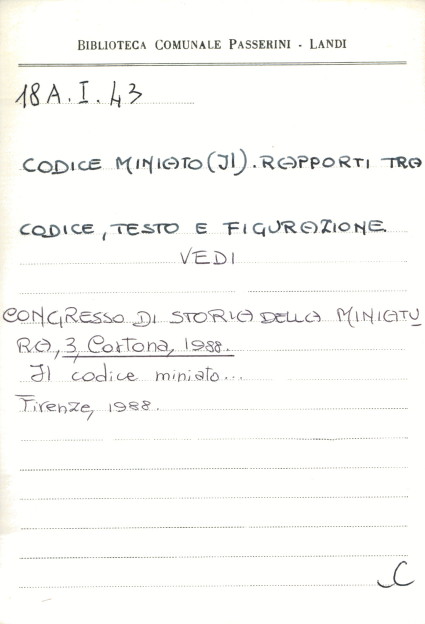 BIBLIOTECA COMUNALE PASSERINI - LANDI
18 A. I. 43
CODICE MINIATO (Il). RAPPORTI TRA
CODICE, TESTO E FIGURAZIONE
VEDI
CONGRESSO DI STORIA DELLA MINIATU
RA, 3, Cortona, 1988.
Il codice miniato...
Firenze, 1988.
C